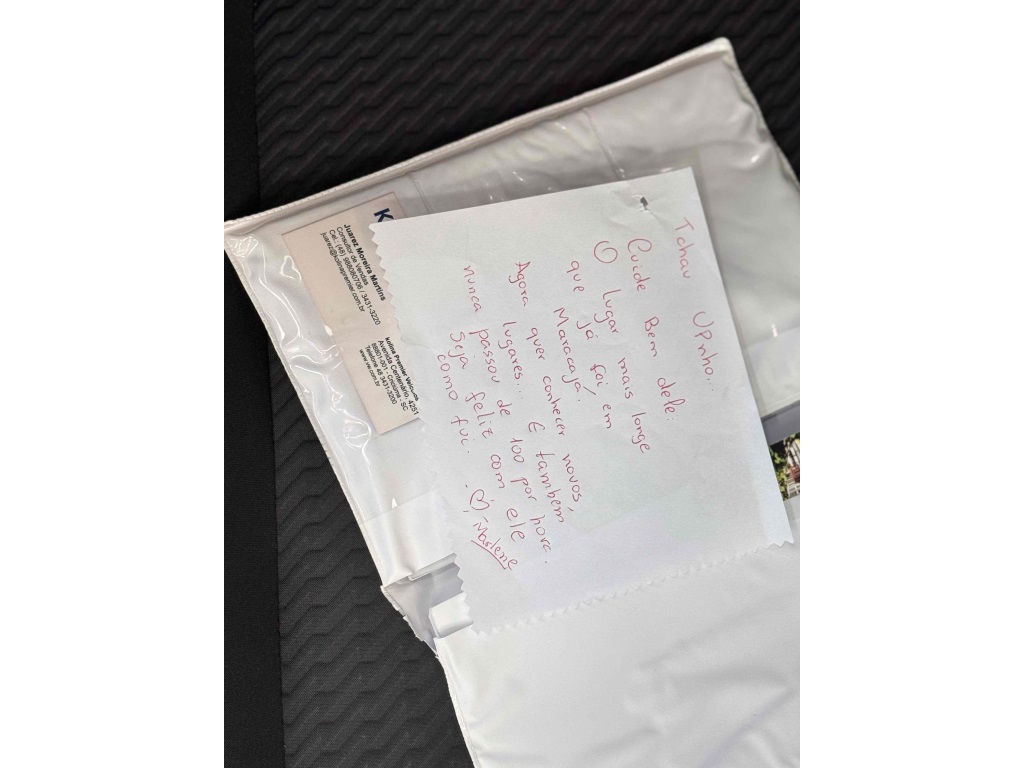 Tchau UPnho...
Cuide Bem dele:
O lugar mais longe
que já foi em
Maracajá!
Agora quer conhecer novos,
lugares... E também
nunca passou de 100 por hora.
Seja feliz com ele
como fui.
Marlene
K
Juarez Moreira Martins
Consultor de Vendas
Cel.: (48) 988060706 / 3431-3220
juarez@kolinapremier.com.br
kolina Premier Veículos
Avenida Centenário, 4251
88801-001 - Criciúma - SC
Telefone 48 3431-3200
www.vw.com.br